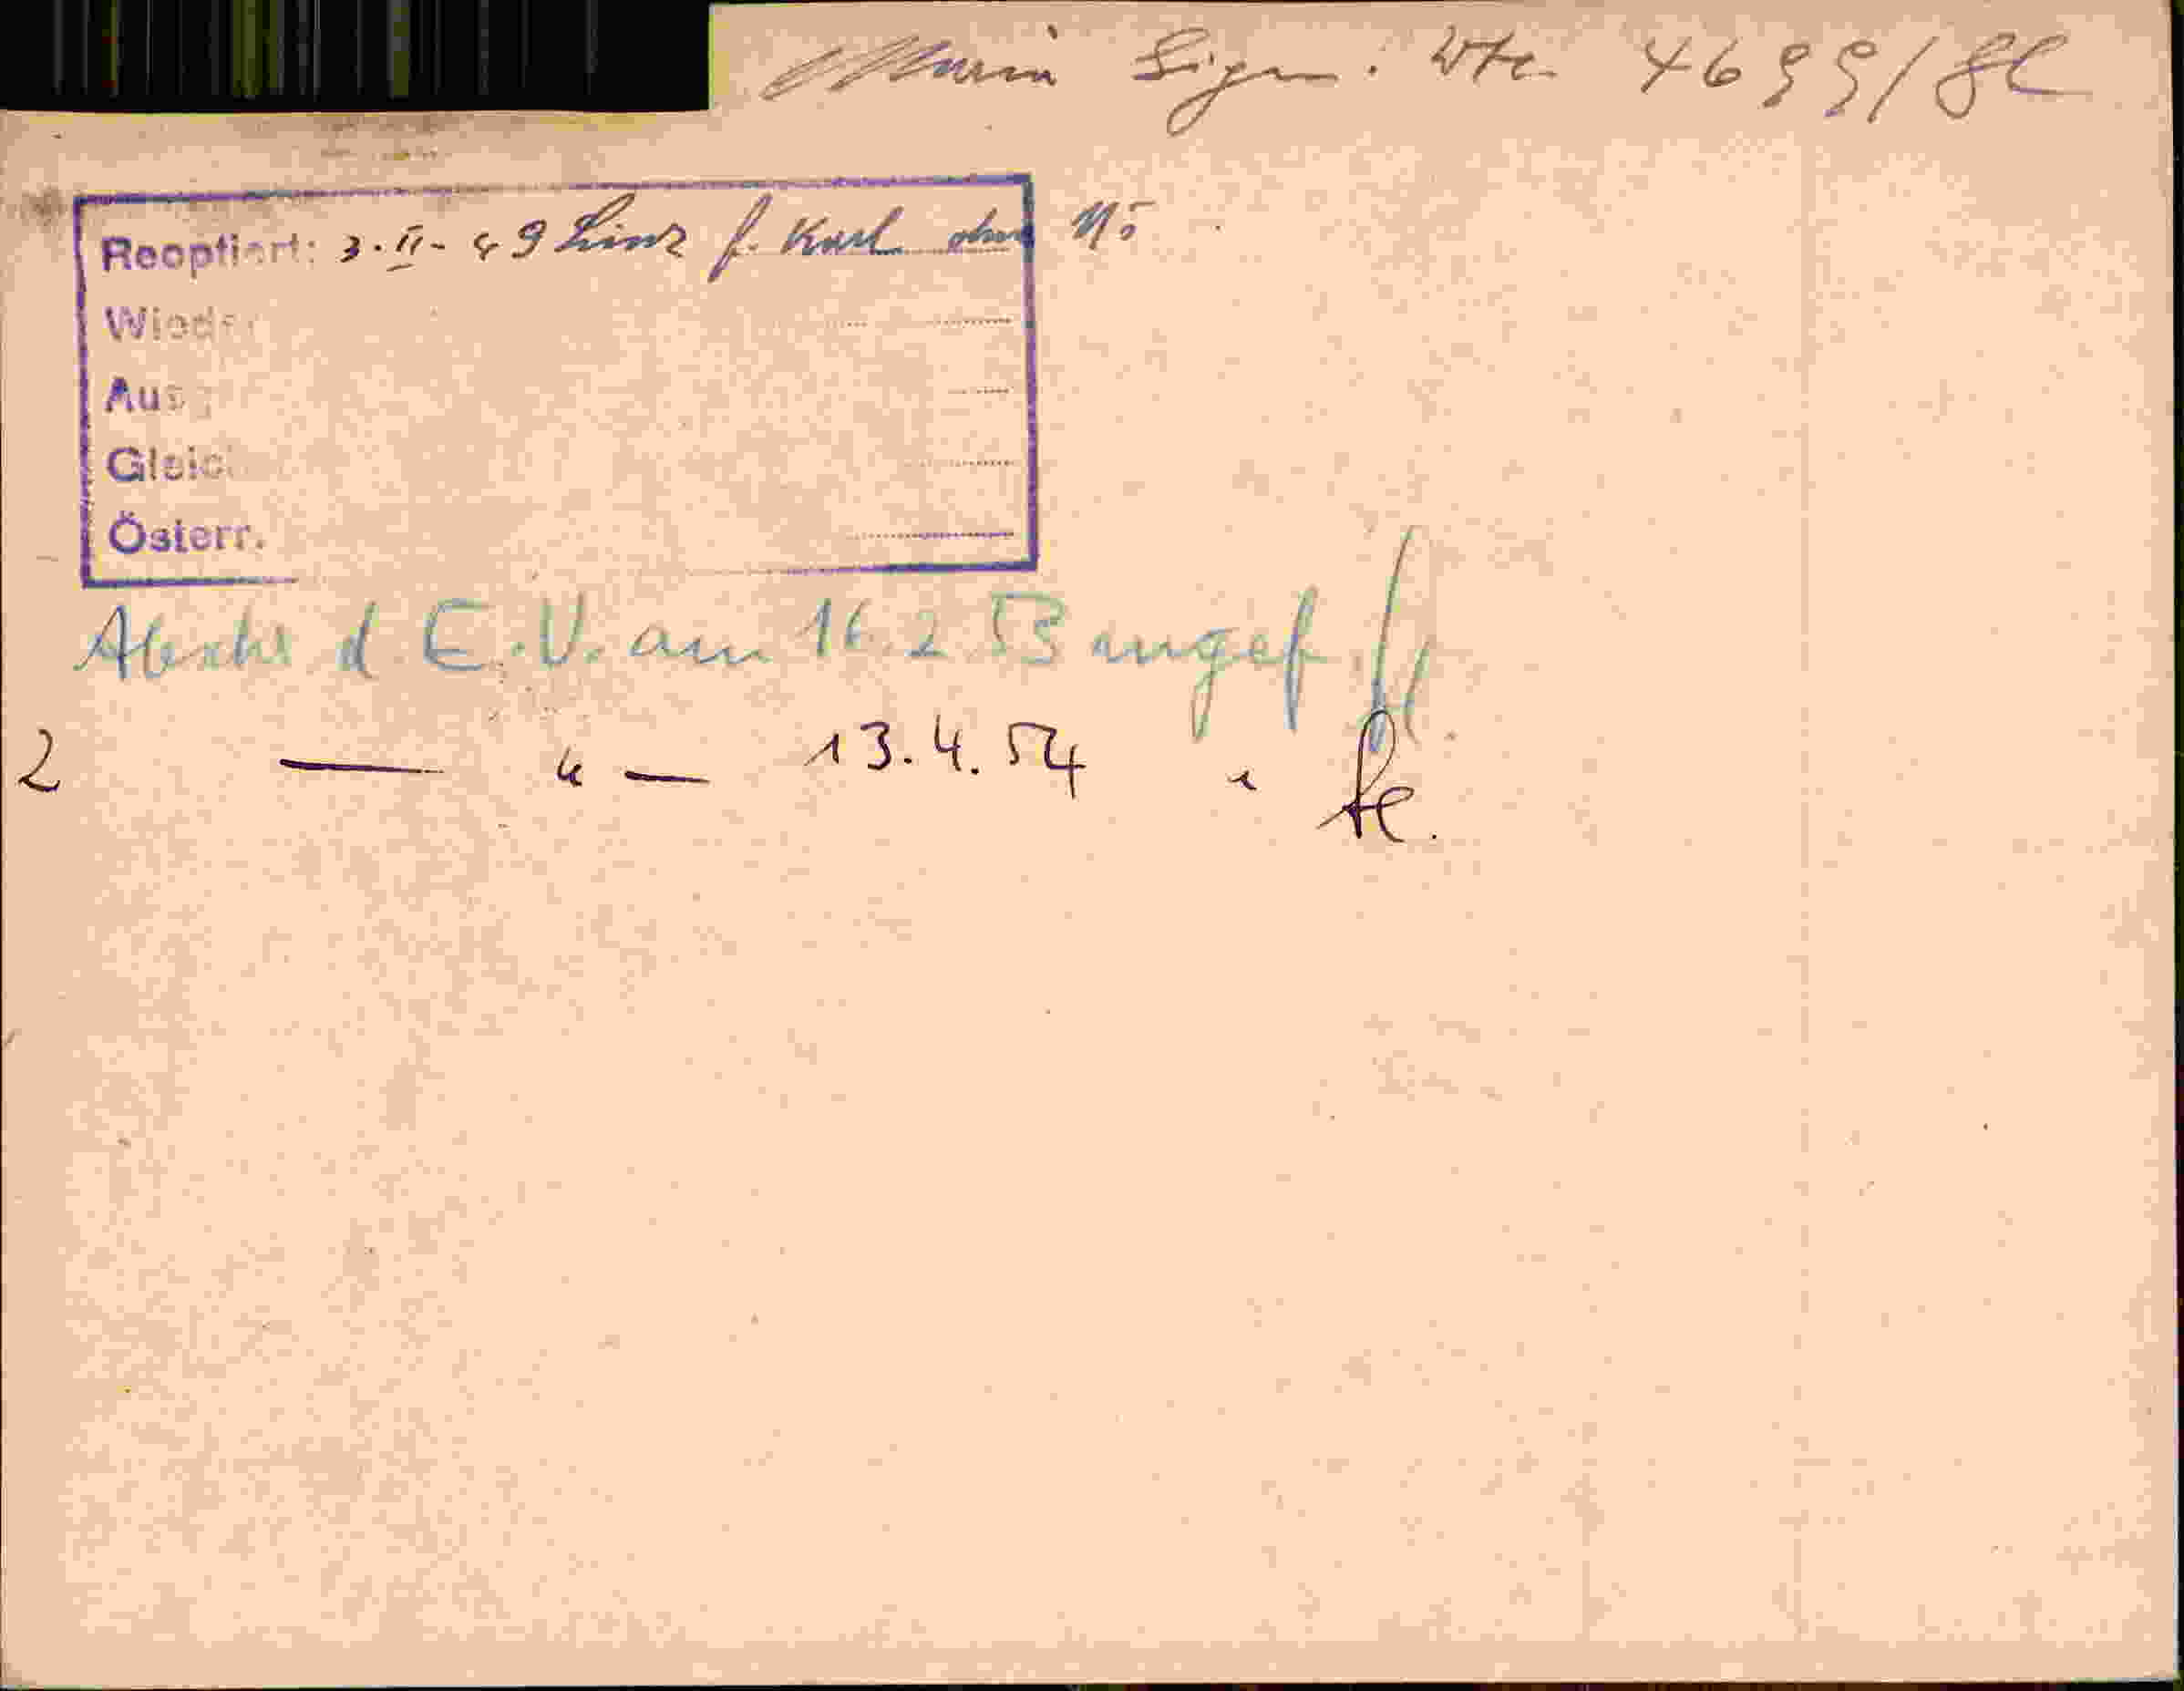 Maria Sign. Wte 4699/
Reoptiert: 3.II-49 Linz f. Karl ohne
Wied
Aus
Gleic
Österr.
Abschr d E.V. am 16.2.53 angef.
2 — " — 13.4.54 "